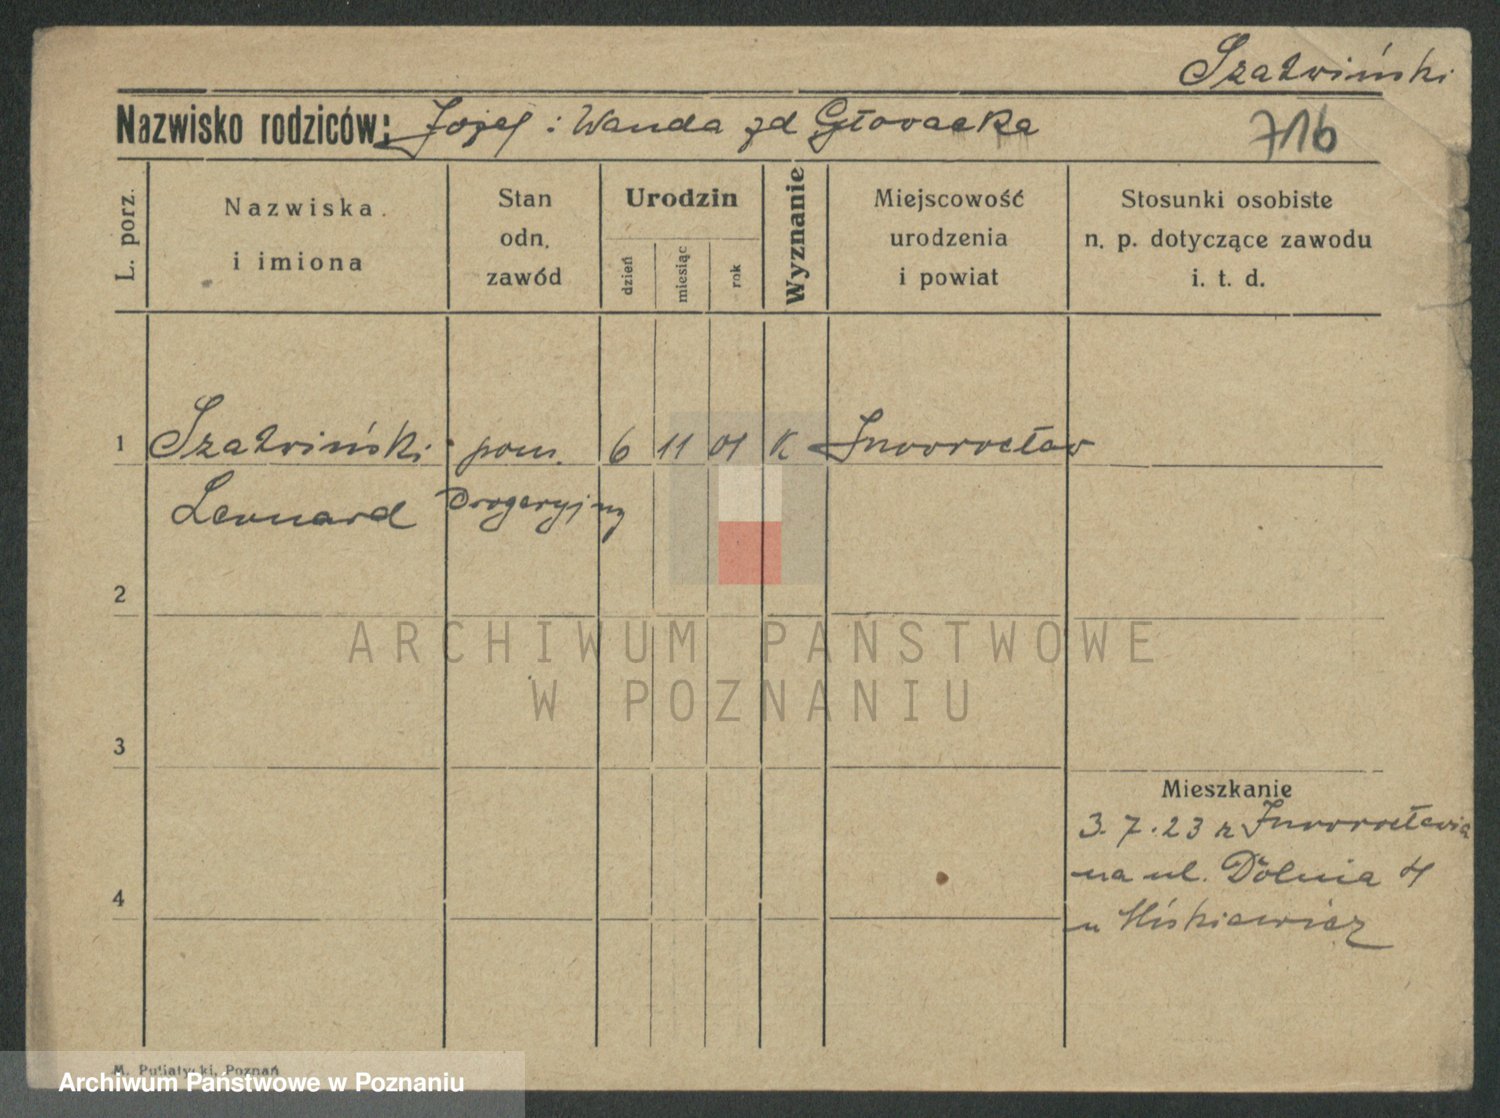 Szałwiński
Nazwisko rodziców: Józef i Wanda zd Głovacka
716
L. porz.
Nazwiska i imiona
Stan odn. zawód
Urodzin
dzień
miesiąc
rok
Wyznanie
Miejscowość urodzenia i powiat
Stosunki osobiste n. p. dotyczące zawodu i. t. d.
1 Szałwiński pom. 6 11 01 K Inowrocław
Leonard Drogeryjny
2
ARCHIWUM PAŃSTWOWE
W POZNANIU
3
Mieszkanie
3.7.23 z Inowrocławia
na ul. Dolnia 4
4
u
M. Putiatycki, Poznań
Archiwum Państwowe w Poznaniu